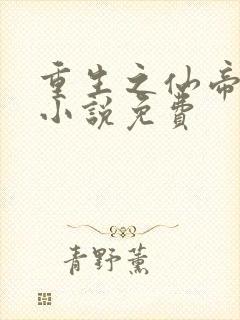 重生之仙帝
小説免費
青野薰